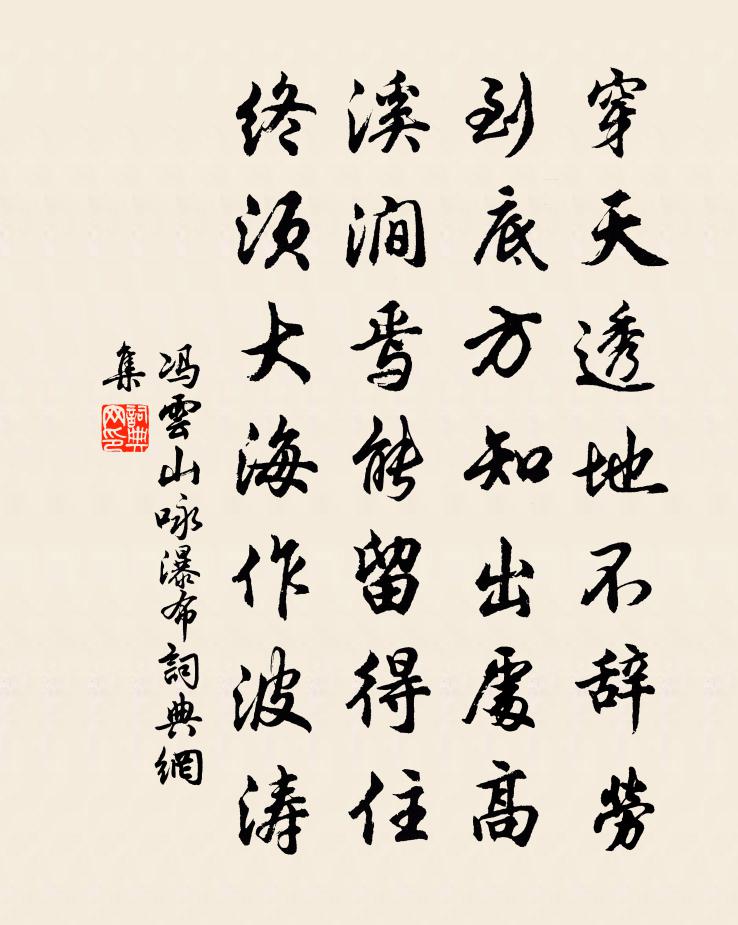 穿天透地不辞勞
到底方知出處高
溪澗焉能留得住
终须大海作波涛
冯雲山咏瀑布詞典網
集
詞典
网印